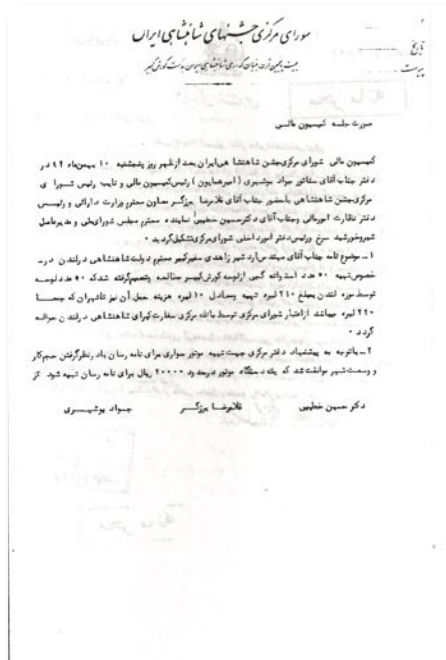 شورای مرکزی جشنهای شاهنشاهی ایران
تاریخ
پیوست
صورت جلسه کمیسیون مالی
کمیسیون مالی شورای مرکزی جشن شاهنشاهی ایران بعد از ظهر روز پنجشنبه ۱۰ بهمن ماه ۴۲ در
دفتر جناب آقای سناتور جواد بوشهری (امیرهمایون) رئیس کمیسیون مالی و نایب رئیس شورای
مرکزی جشن شاهنشاهی باحضور جناب آقای غلامرضا برزگر معاون محترم وزارت دارائی و رئیس
دفتر نظارت امورمالی وجناب آقای دکترحسین خطیبی نماینده محترم مجلس شورایملی و مدیرعامل
شیروخورشید سرخ ورئیس دفتر امور داخلی شورای مرکزی تشکیل گردید ۰
۱ـ موضوع نامه جناب آقای مهندس اردشیر زاهدی سفیرکبیر محترم دولت شاهنشاهی در لندن در
خصوص تهیه ۵۰ عدد استوانه گچی از لوحه کورش کبیر مطالعه وتصمیم گرفته شد که ۵۰ عدد لوحه
توسط موزه لندن بمبلغ ۲۱۰ لیره تهیه ومعادل ۱۰ لیره هزینه حمل آن نیز تا تهران که جمعا
۲۲۰ لیره میباشد از اعتبار شورای مرکزی توسط بانک مرکزی سفارت کبرای شاهنشاهی در لندن حواله
گردد ۰
۲ـ باتوجه به پیشنهاد دفتر مرکزی جهت تهیه موتور سواری برای نامه رسان باد رنظرگرفتن حجم کار
و وسعت شهر موافقت شد که یک دستگاه موتور درحدود ۲۰۰۰۰ ریال برای نامه رسان تهیه شود
دکتر حسین خطیبی غلامرضا برزگر جواد بوشهری